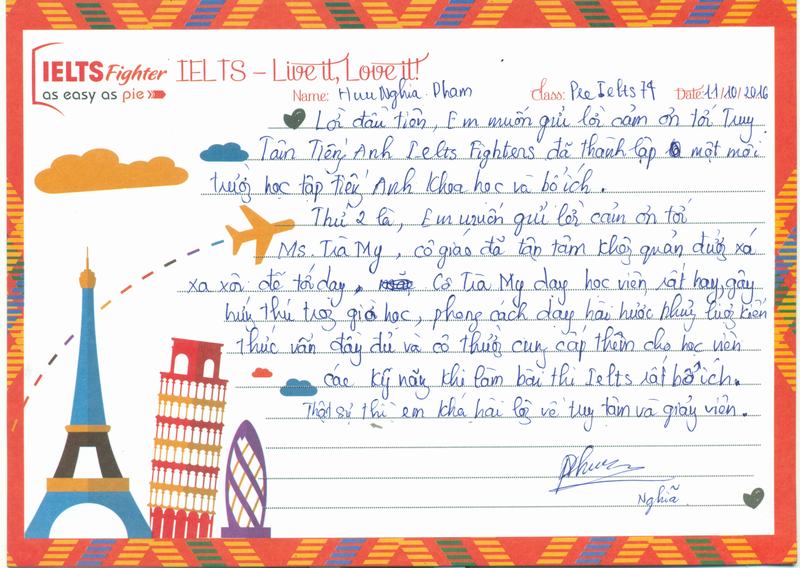 IELTS Fighter
as easy as pie
IELTS – Live it, Love it!
Name: Huu Nghia Pham Class: Pre Ielts 74 Date: 11/10/2016
Lời đầu tiên, Em muốn gửi lời cảm ơn tới Truy
Tâm Tiếng Anh Ielts Fighters đã thành lập một môi
trườg học tập tiếng Anh khoa học và bổ ích.
Thứ 2 là, Em muốn gửi lời cảm ơn tới
Ms. Trà My, cô giáo đã tận tâm khôg quản đườg xá
xa xôi để tới dạy. Cô Trà My dạy học viên rất hay, gây
hứng thú trog giờ học, phong cách dạy hài hước nhưng lượg kiến
thức vẫn đầy đủ và cô thườg cung cấp thêm cho học viên
các kỹ năg khi làm bài thi Ielts rất bổ ích.
Thật sự thì em khá hài lòg về truy tâm và giảg viên.
Nghĩa